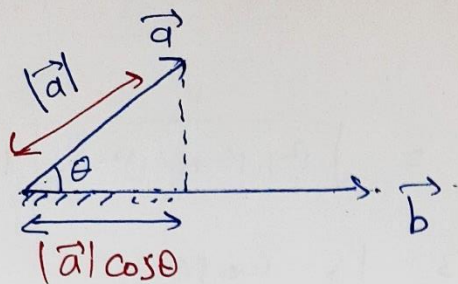 $\vec{a}$
$|\vec{a}|$
θ
$\vec{b}$
$|\vec{a}| \cos\theta$